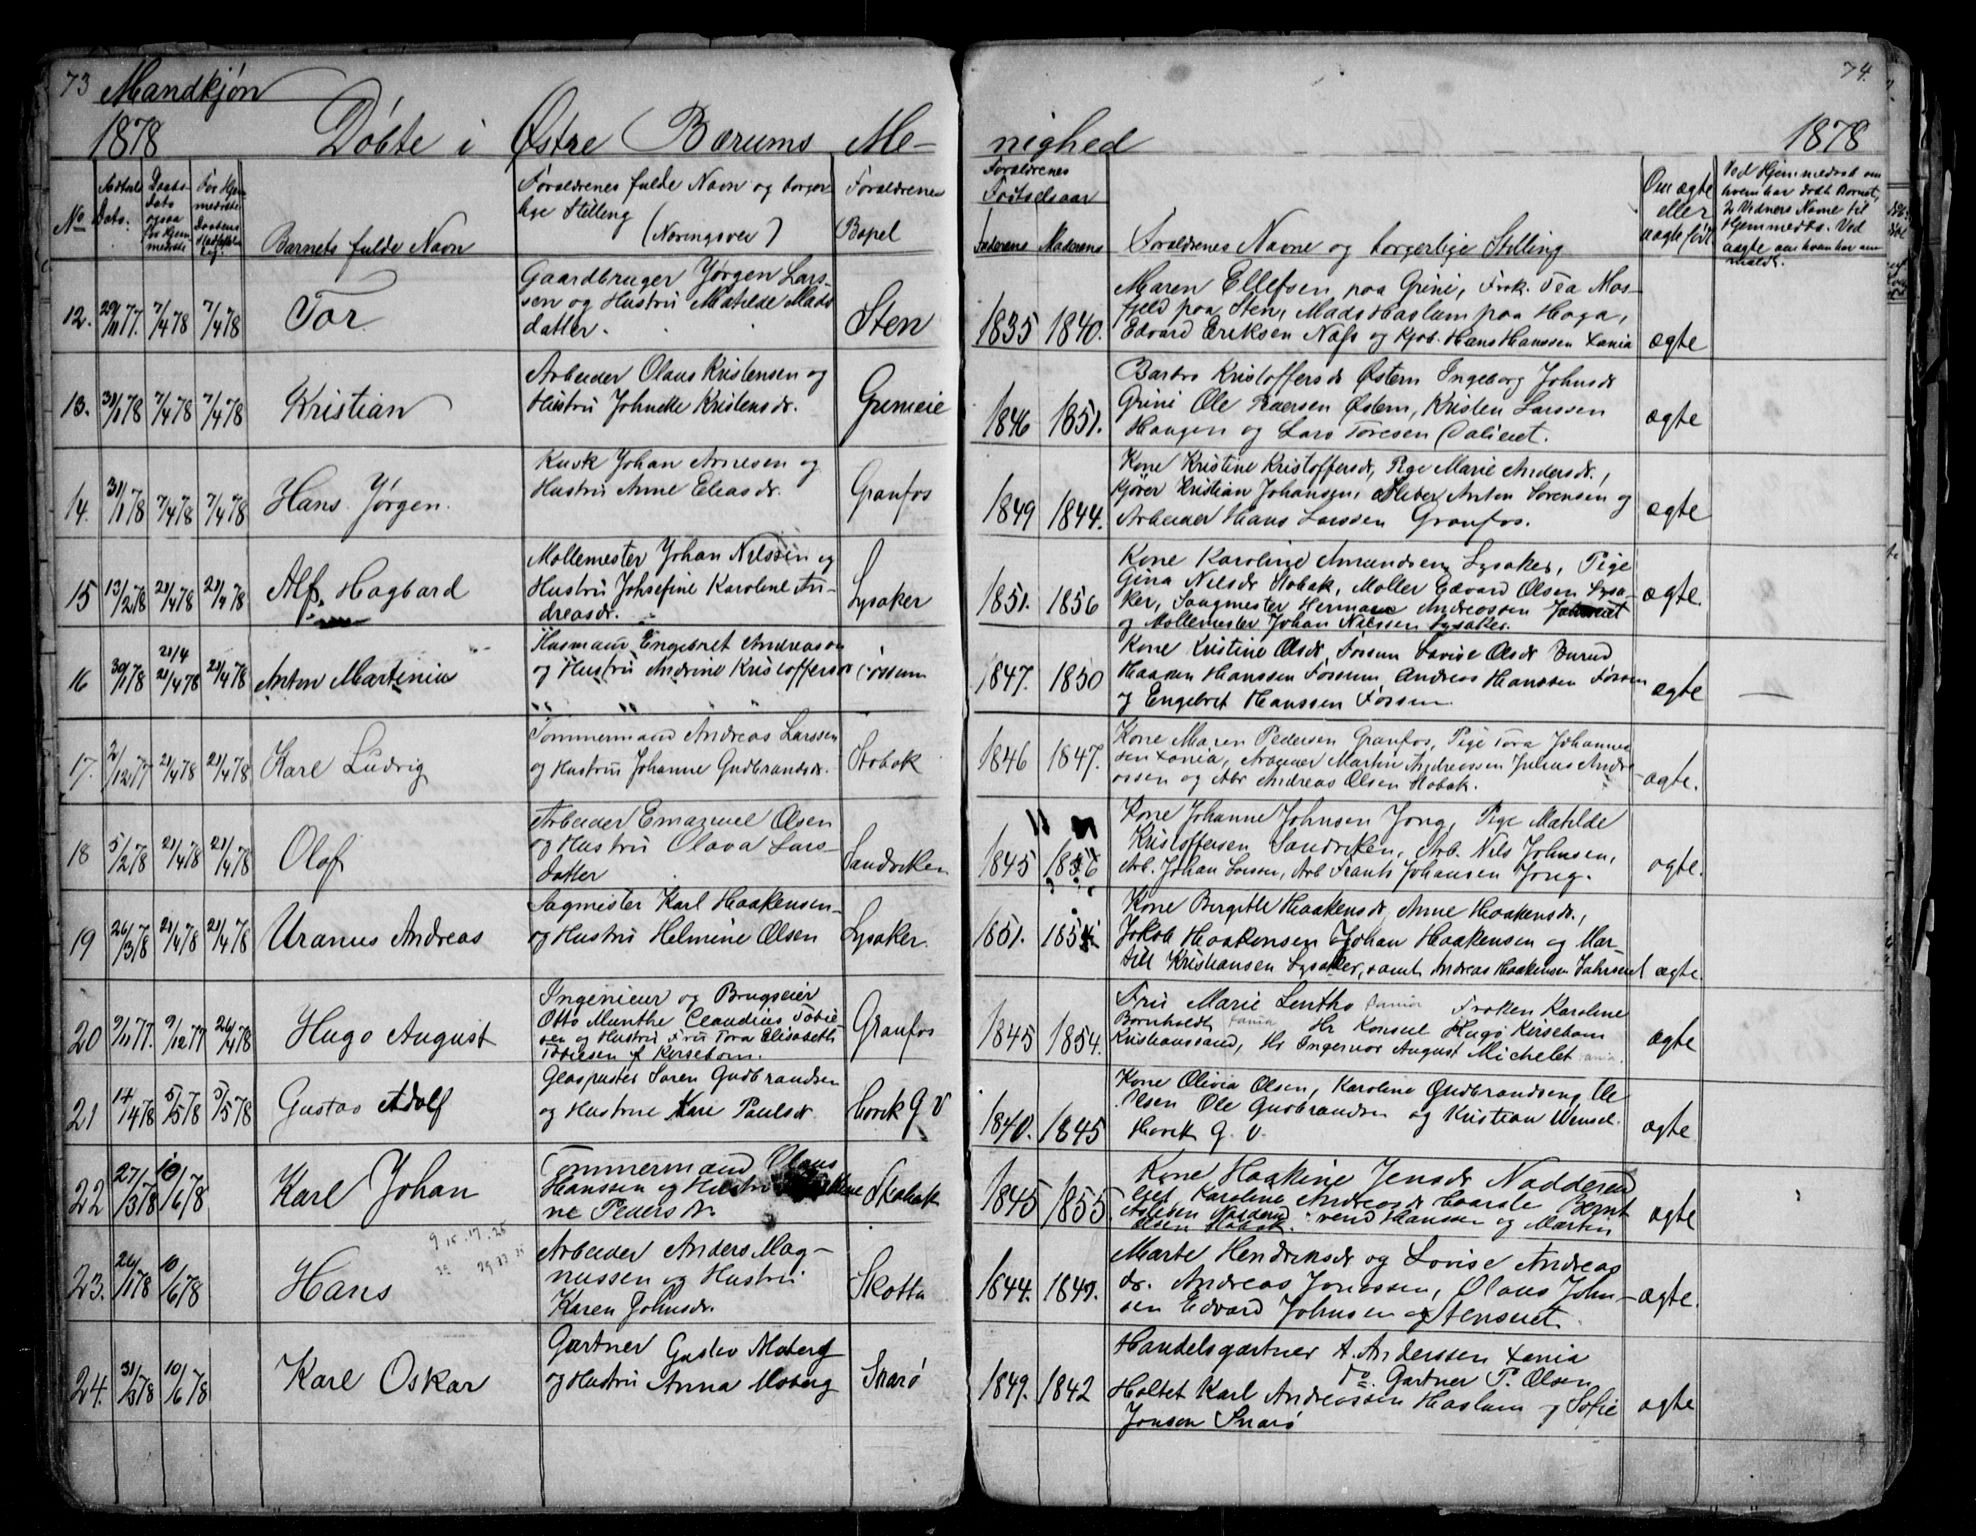 73 Mandkjøn
1878 Døbte i Østre Bærums Me-
No
Dato
Barnets fulde Navn
Forældrenes fulde Navn og borger
lige Stilling
(Næringsvei)
Forældrenes
Bopel
12. 29/11 77. 7/4 78 7/4 78 Tor
Gaardbruger Jørgen Lars-
sen og Hustru Matilde Mads
datter.
Sten
13. 31/1 78 7/4 78 7/4 78 Kristian
Arbeider Olaus Kristensen og
Hustru Johnette Kristensdr.
Grinieie
14. 31/1 78 7/4 78 7/4 78 Hans Jørgen.
Kusk Johan Arnesen og
Hustru Anne Eliasdr.
Granfos
15 13/2 78 21/4 78 21/4 78 Alf Hagbard
Møllemester Johan Nilssen og
Hustru Johsefine Karoline An-
dreasdr.
Lysaker
16 30/1 78 21/4 21/4 78 21/4 78 Anton Martinius
Husmand Engebret Andreasen
og Hustru Andrine Kristoffersdr
Fossum
17. 2/12 77 21/4 78 21/4 78 Karl Ludvig
Tømmermand Andreas Larssen
og Hustru Johanne Gudbrandsdr.
Stobak
18 5/2 78 21/4 78 21/4 78 Olaf
Arbeider Emanuel Olsen
og Hustru Olava Lars-
datter
Sandviken
19 26/3 78 21/4 78 21/4 78 Uranus Andreas
Sagmester Karl Haakensen-
og Hustru Helmine Olsen
Lysaker.
20 9/11 77. 9/12 77 26/4 78 Hugo August
Ingenieur og Brugseier
Otto Munthe Claudius Tobie
sen og Hustru Fru Tora Elisabeth
Tobiesen f Kirsebom.
Granfos
21 14/4 78 5/5 78 5/5 78 Gustav Adolf
Glaspuster Søren Gudbrandsen
og Hustrue Kari Paulsdr
Høvik G V
22 27/3 78 10/6 78 Karl Johan
Tømmermand Olaus
Hanssen og Hustru
ne Pedersdr.
Stabak
9 15. 17. 25
23. 24/1 78 10/6 78 Hans
Arbeider Anders Mag-
nussen og Hustru
Karen Johnsdr.
Skotta
24. 31/3 78 10/6 78 Karl Oskar
Gartner Gustav Moberg
og Hustru Anna Moberg
Snarø
74.
nighed 1878
Forældrenes
Fødselsaar
Faderens Moderens
Forældrenes Navne og borgerlige Stilling
Om ægte
eller
uægte født
Ved Hjemmedaab om
hvem har døbt Barnet,
2 Vidners Navne til
Hjemmedb. Ved
uægte om hvem har an
meldt.
1835 1840.
Maren Ellefsen paa Grini, Frøk. Tea Mos-
fjeld paa Sten, Mads Haslum paa Haga,
Edvard Eriksen Næss og Kjøb. Hans Hanssen Xania
ægte
1846 1851.
Barbro Kristoffersdr Østern Ingeborg Johnsdr
Grini Ole Pedersen Østern, Kristen Larssen
Haugen og Lars Toresen
ægte
1849 1844.
Kone Kristine Kristoffersdr, Pige Marie Andersdr.,
Kjører Kristian Johansen, Sliber Anton Sørensen og
Arbeider Hans Larssen Granfos.
ægte
1851. 1856
Kone Karoline Amundsen Lysaker, Pige
Gina Nilsdr Stobak, Møller Edvard Olsen Lysa-
ker, Saugmester Herman Andreassen
og Møllemester Johan Nilssen Lysaker.
ægte.
1847. 1850
Kone Kristine Olsdr Fossum Lovise Olsdr Burud
Haaken Hanssen Fossum, Andreas Hanssen Fossum
og Engebret Hanssen Fossum
ægte
1846 1847.
Kone Maren Pedersen Granfos, Pige Tora Johannes
sen Xania, Arbeider Martin Andreassen Julius Andre
assen og Abr Andreas Olsen Stobak.
ægte.
1845 1856
Kone Johanne Johnsen Jong, Pige Matilde
Kristoffersen Sandviken, Arb. Nils Johnsen,
Arb. Johan Larssen, Arb Frants Johansen Jong.
ægte.
1851. 1854
Kone Bergitte Haakensdr, Anne Haakensdr.,
Jakob Haakensen Johan Haakensen og Mar-
till Kristiansen Lysaker, samt Andreas Haakensen
ægte
1845 1854.
Fru Marie Lentho Xania Frøken Karoline
Bornholdt Xania Hr Konsul Hugo Kirsebom
Kristianssand, Hr Ingeniør August Michelet Xania.
ægte
1840. 1845
Kone Olivia Olsen, Karoline Gudbrandsen, Ole
Olsen Ole Gudbrandsen og Kristian Wensel
Høvik G. V.
ægte
1845 1855
Kone Haakine Jensdr Nadderud
eiet, Karoline Andreasdr Haarsle Bernt
Asleksen Nadderud Hanssen og Martin
Olsen Stobak.
ægte
1844. 1849.
Marte Hendriksdr og Lovise Andreas
dr. Andreas Jonassen, Olaus John-
sen Edvard Johnsen og
ægte.
1849. 1842
Handelsgartner A. Anderssen Xania
Do. Gartner P. Olsen
Holtet Karl Andreassen Haslum og Sofie
Jonsen Snarø
ægte